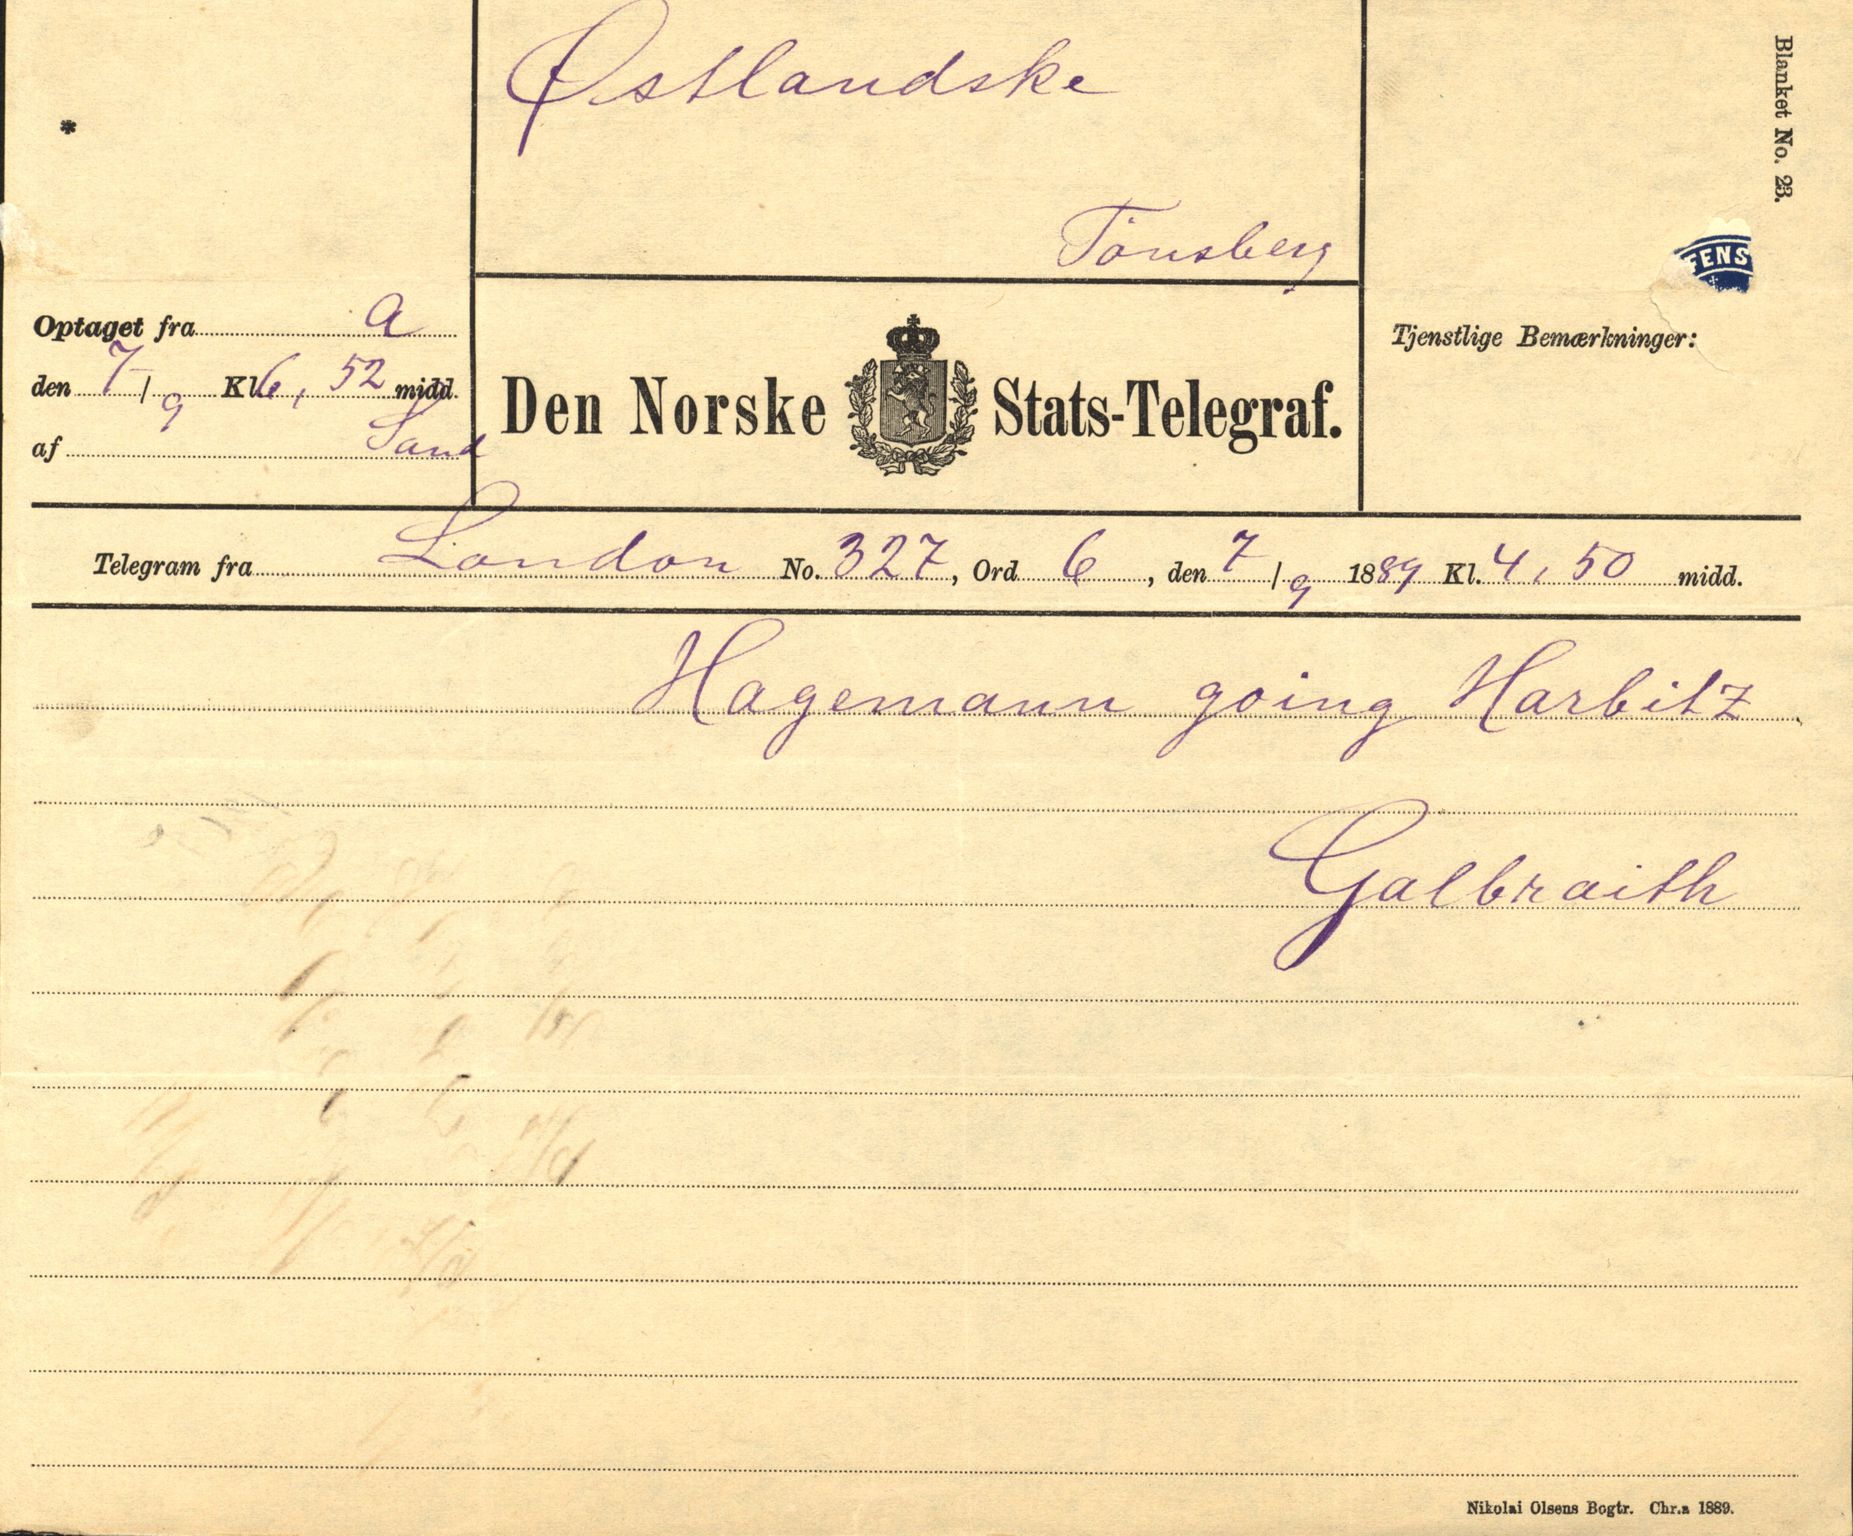 Østlandske
Tönsberg
Blanket No. 23.
*
ENS
Optaget fra a
den 7/9 Kl. 6,52 midd.
af Sand
Den Norske Stats-Telegraf.
Tjenstlige Bemærkninger:
Telegram fra London No. 327, Ord 6, den 7/9 1889 Kl. 4,50 midd.
Hagemann going Harbitz
Galbraith
Nikolai Olsens Bogtr. Chr.a 1889.